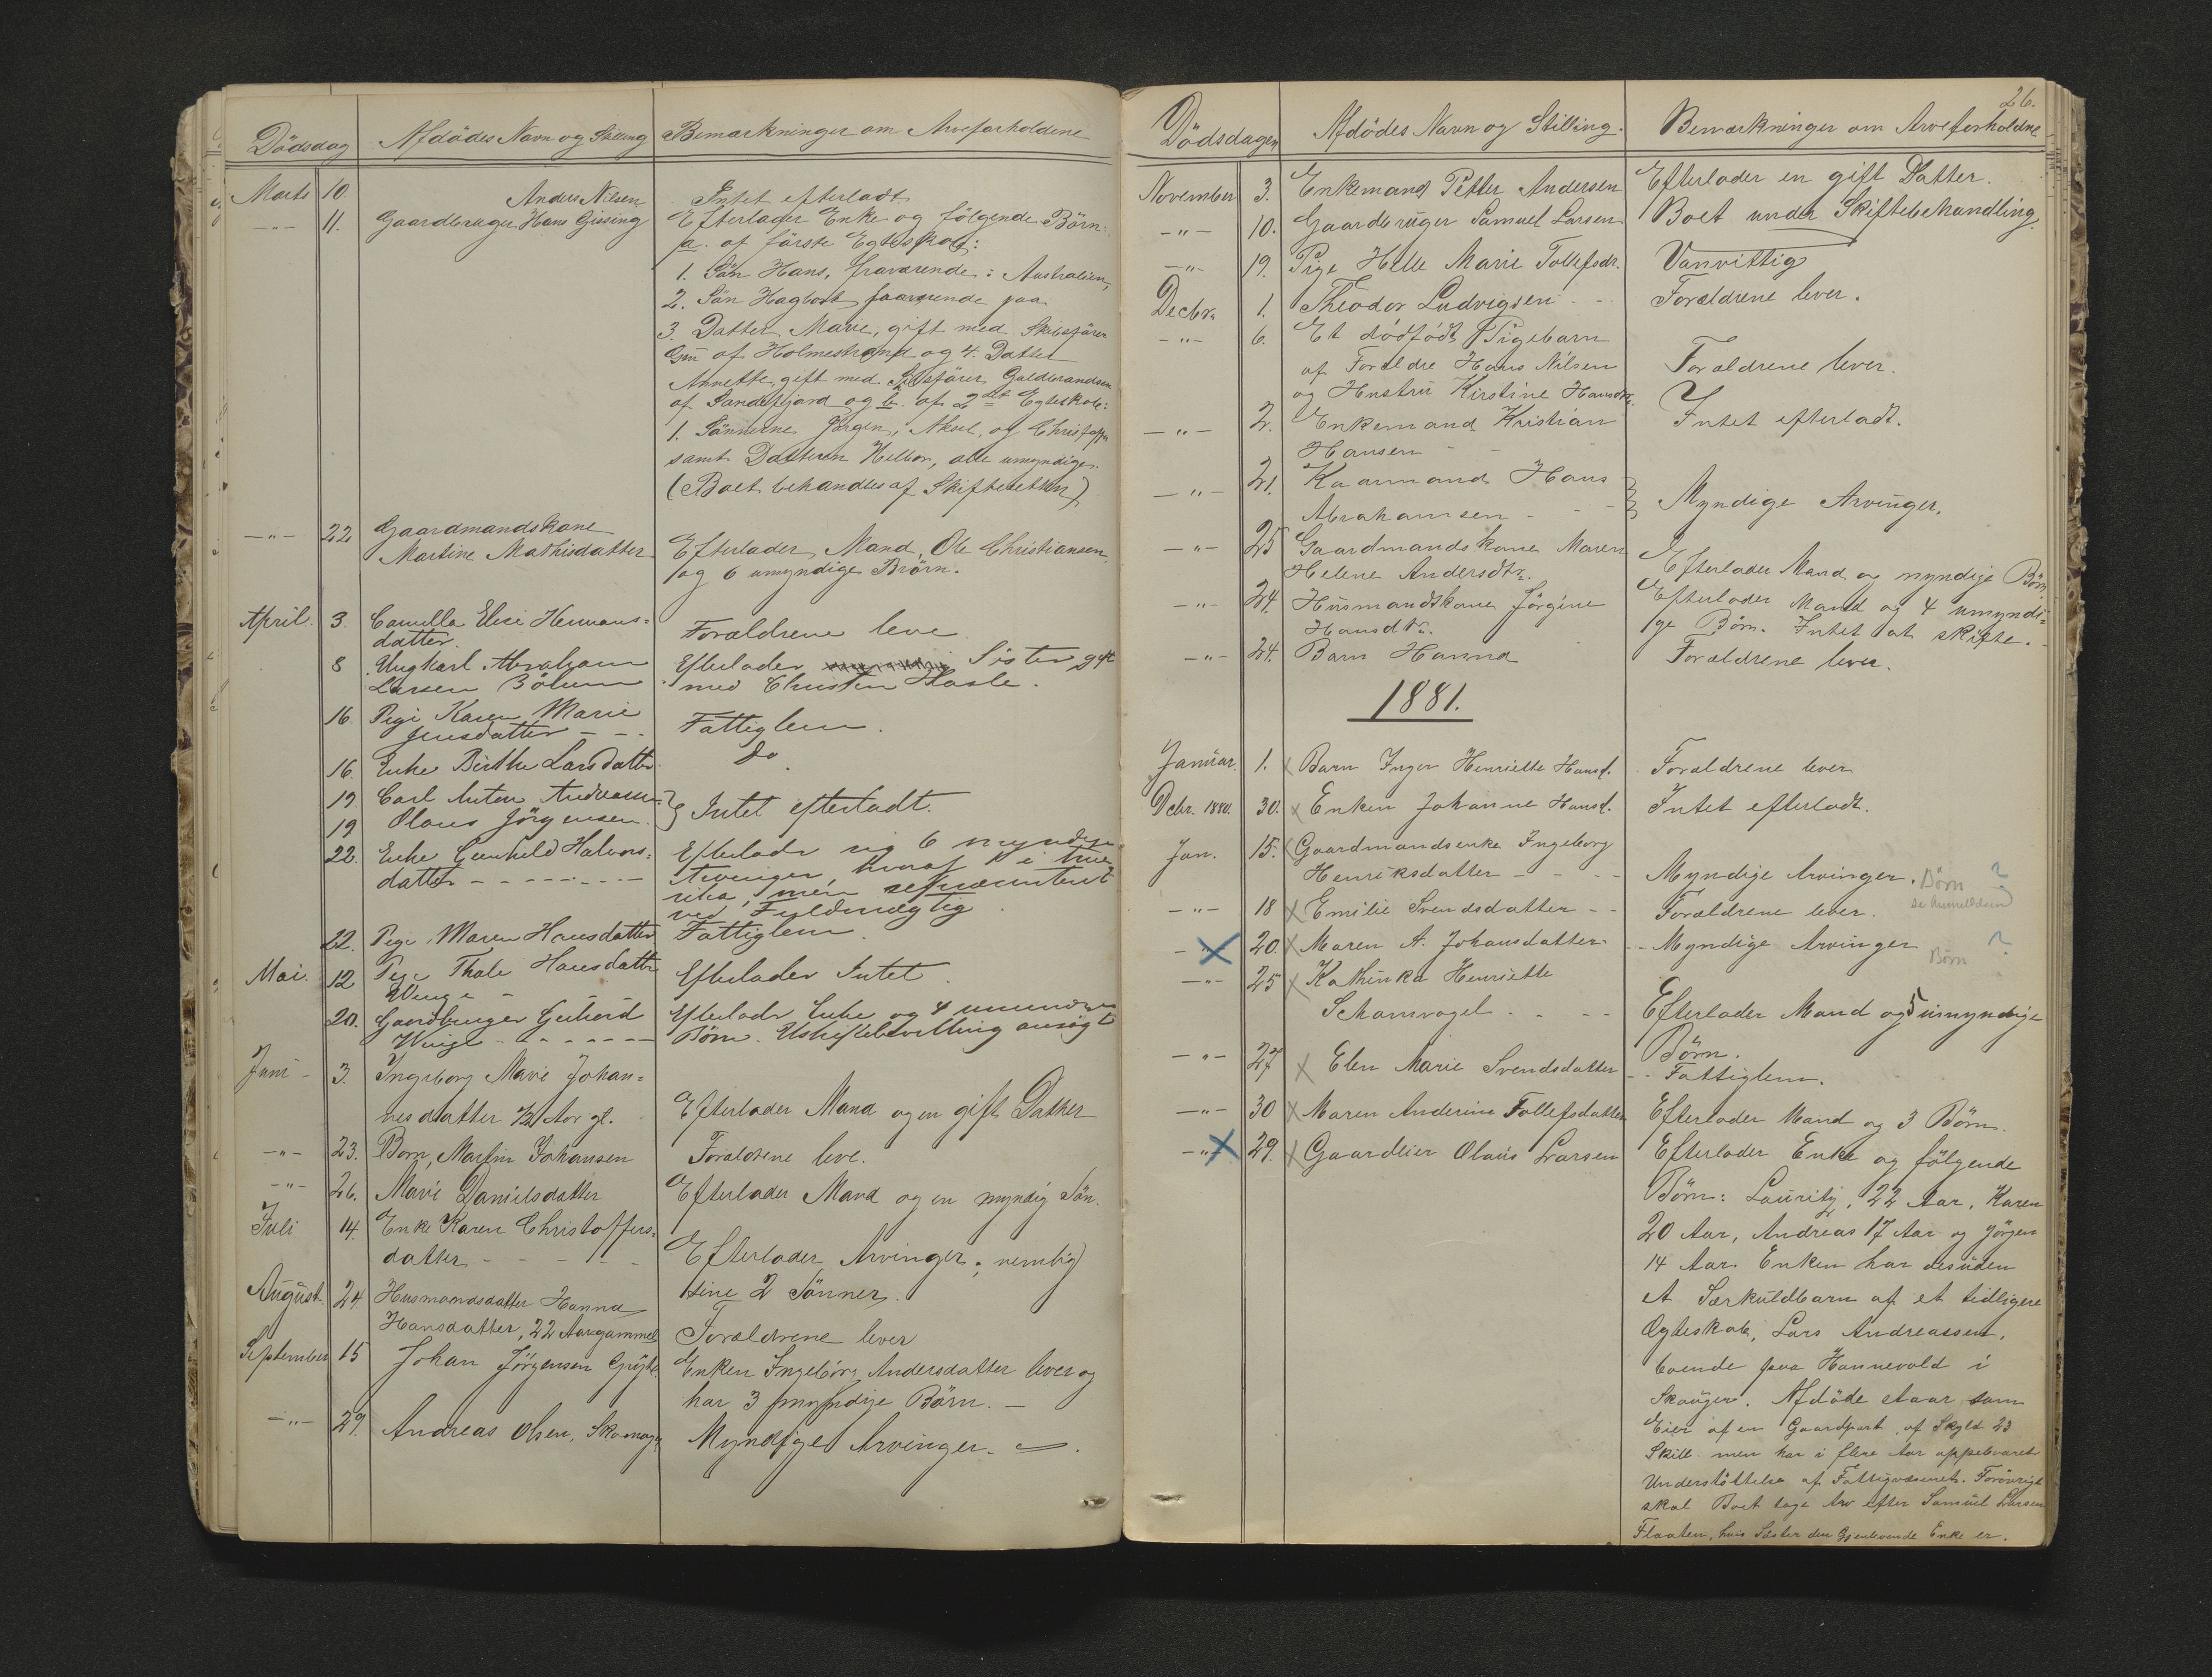 Dödsdag Afdödes Navn og Stilling Bemærkninger om Arveforholdene
Marts 10. Anders Nilsen Intet efterladt
—"— 11. Gaardbruger Hans Gissing Efterlader Enke og fölgende Börn:
a. af förste Egteskab:
1. Sön Hans, fraværende i Australien,
2. Sön Hagbart, farende paa
3. Datter Marie, gift med Skibsförer
af Holmestrand og 4. Datter
Annette, gift med Skibsförer Guldbrandsen
af Sandefjord og b. af 2det Egteskab:
1. Sönnerne Jörgen, Aksel, og Christoffer
samt Datteren Helbor, alle umyndige.
(Boet behandles af Skifteretten)
—"— 22 Gaardmandskone
Martine Mathisdatter Efterlader Mand, Ole Christiansen
og 6 umyndige Börn.
April. 3. Camilla Elise Hermans=
datter. Forældrene leve
8 Ungkarl Abraham Efterlader Söster gift
Larsen Bölum med Christen Hasle.
16. Pige Karen Marie
Jensdatter – – Fattiglem.
16. Enke Birthe Larsdatter. Do
19. Carl Anton Andreasen } Intet efterladt.
19 Olaus Jörgensen.
22. Enke Gunhild Halvors= Efterlader sig 6 myndige
datter – – – – – Arvinger, hvoraf 1 i Ame
rika, men repræsenteret
ved Fuldmægtig
22. Pige Maren Hansdatter Fattiglem.
Mai. 12 Pige Thale Hansdatter Efterlader Intet.
Winge –
20. Gaardbruger Gulierd Efterlader Enke og 4 umyndige
Winge – – – – – Börn. Uskiftebevilling ansögt
Juni – 3. Ingeborg Marie Johan=
nesdatter 72 Aar gl. Efterlader Mand og en gift Datter
—"— 23. Barn, Martin Johansen Forældrene leve.
—"— 26. Marie Danielsdatter Efterlader Mand og en myndig Sön.
Juli 14. Enke Karen Christoffers=
datter – – – – Efterlader Arvinger, nemlig
sine 2 Sönner.
August. 24. Husmandsdatter Hanna
Hansdatter, 22 Aar gammel Forældrene lever
September 15 Johan Jörgensen Enken Ingeborg Andersdatter lever og
har 3 umyndige Börn. –
—"— 29. Andreas Olsen, Skomager Myndige Arvinger.
26.
Dödsdagen Afdödes Navn og Stilling. Bemærkninger om Arveforholdne
November 3. Enkemand Petter Andersen Efterlader en gift Datter.
—"— 10. Gaardbruger Samuel Larsen Boet under Skiftebehandling.
—"— 19. Pige Helle Marie Tollefsdr. Vanvittig
Decbr. 1. Theodor Ludvigsen – – Forældrene lever.
—"— 6. Et dödfödt Pigebarn
af Forældre Hans Nilsen Forældrene lever.
og Hustru Kirstine Hansdtr.
—"— 2. Enkemand Kristian Intet efterladt.
Hansen – –
—"— 21. Kaarmand Hans
Abrahamsen – – – } Myndige Arvinger.
—"— 25 Gaardmandskone Maren
Helene Andersdtr. Efterlader Mand og myndige Börn
—"— 24. Husmandskone Jörgine Efterlader Mand og 4 umyndi=
Hansdtr. ge Börn. Intet at skifte.
—"— 24. Barn Hanna Forældrene lever.
1881.
Januar. 1. x Barn Inger Henriette Hansd. Forældrene lever
Debr. 1880. 30. x Enken Johanne Hansd. Intet efterladt.
Jan. 15. x Gaardmandsenke Ingeborg
Henriksdatter – – – Myndige Arvinger. Börn ?
se Anmeldsen
—"— 18 x Emilie Svendsdatter – – Forældrene lever.
—"— x 20. x Maren A. Johansdatter – – Myndige Arvinger Börn ?
—"— 25 x Kathinka Henriette
Schamvogel – – – Efterlader Mand og 5 umyndige
Börn.
—"— 27 x Elen Marie Svendsdatter – – Fattiglem.
—"— 30 x Maren Anderine Tollefsdatter Efterlader Mand og 3 Börn.
—"— x 29. x Gaardeier Olaus Larsen Efterlader Enke og fölgende
Börn: Lauritz, 22 Aar, Karen
20 Aar, Andreas 17 Aar og Jörgen
14 Aar. Enken har desuden
et Særkuldbarn af et tidligere
Egteskab, Lars Andreassen,
boende paa Hannevold i
Skauger. Afdöde staar som
Eier af en Gaardpart af Skyld 23
Skill. men har i flere Aar oppebaaret
Understöttelse af Fattigvæsenet. Forövrigt
skal Boet tage Arv efter Samuel Larsen
Flaaten, hvis Söster den Gjenlevende Enke er.